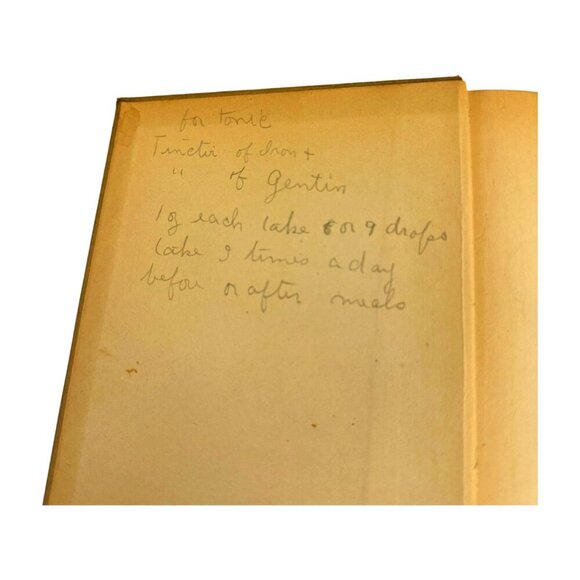 for tonic
Tinctir of Iron +
" of Gentin
1 oz each take 8 or 9 drops
take 3 times a day
before or after meals